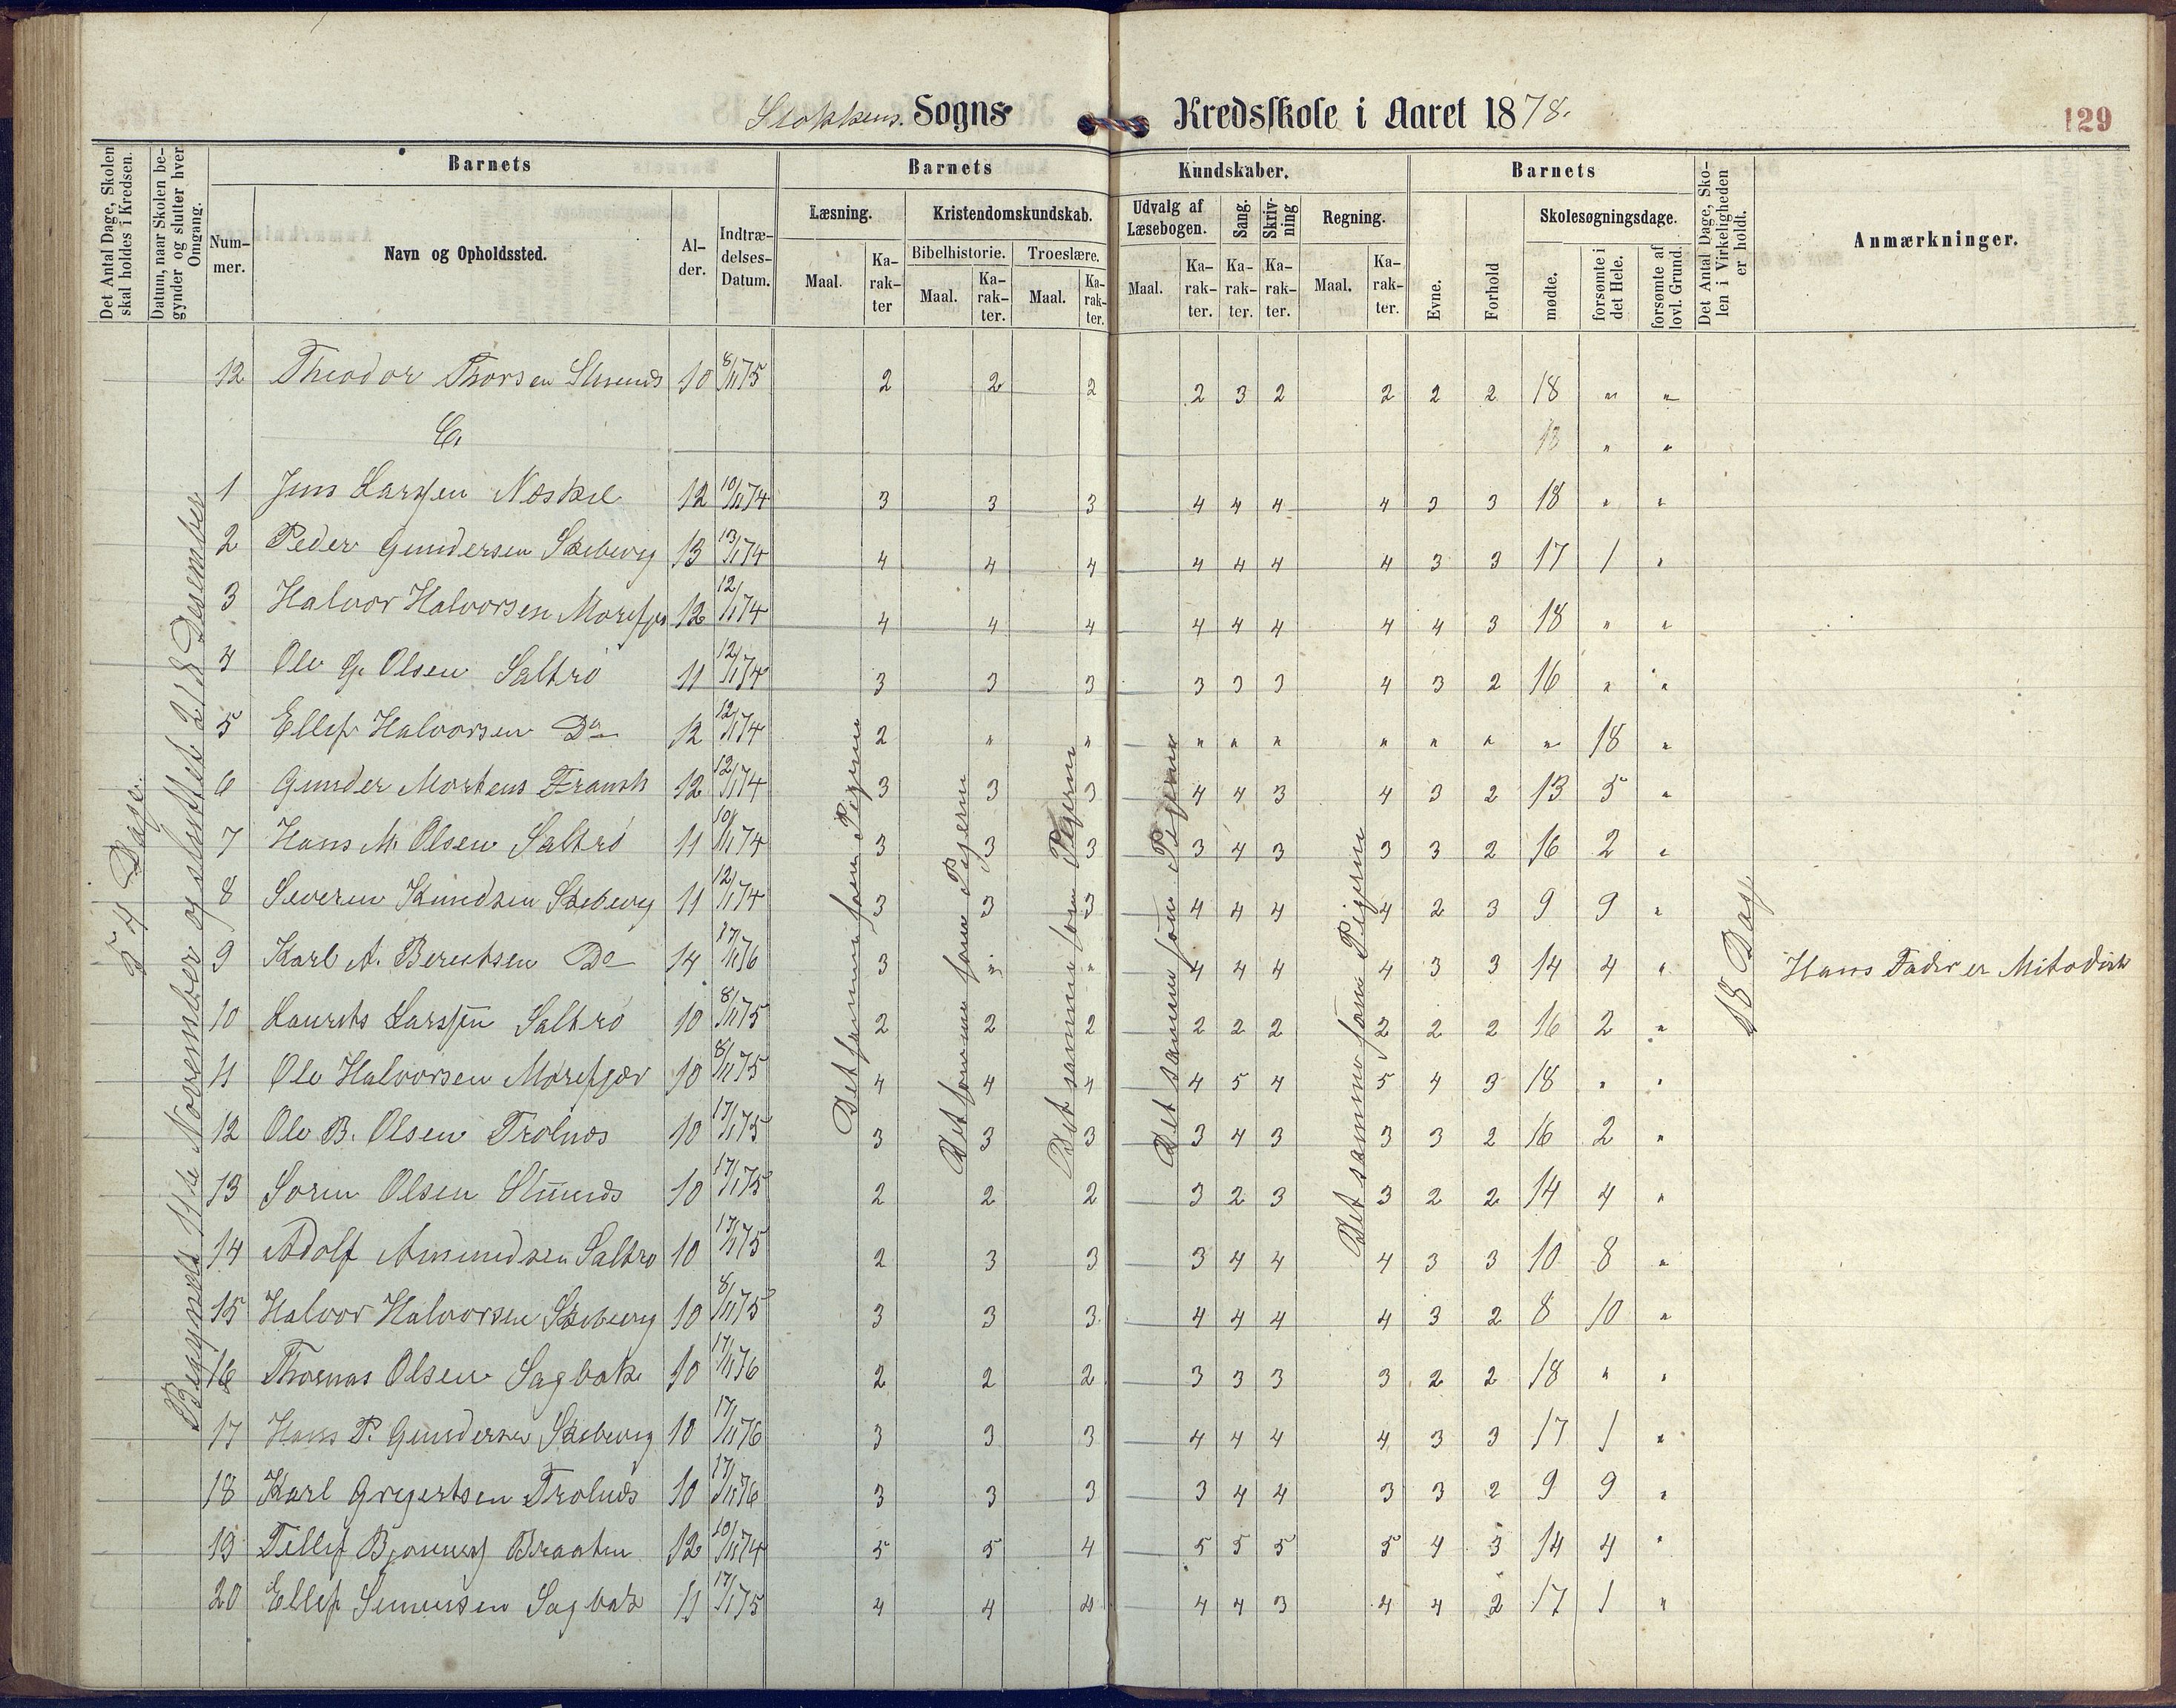 Stokkens Sogns Kredsskole i Aaret 1878.
129
Det Antal Dage, Skolen skal holdes i Kredsen.
Datum, naar Skolen begynder og slutter hver Omgang.
Barnets
Barnets
Kundskaber.
Barnets
Det Antal Dage, Skolen i Virkeligheden er holdt.
Anmærkninger.
Nummer.
Navn og Opholdssted.
Alder.
Indtrædelses-Datum.
Læsning.
Kristendomskundskab.
Udvalg af Læsebogen.
Sang.
Skrivning
Regning.
Evne.
Forhold
Skolesøgningsdage.
Bibelhistorie.
Troeslære.
Maal.
Karakter
Maal.
Karakter.
Maal.
Karakter.
Maal.
Karakter.
Karakter.
Karakter.
Maal.
Karakter.
mødte.
forsømte i det Hele.
forsømte af lovl. Grund.
54 Dage.
Begyndt 11te November og sluttet 21de Desember
Det samme som Pigerne
Det samme som Pigerne
Det samme som Pigerne
Det samme som Pigerne
Det samme som Pigerne
18 Dage
12 Theodor Thorsen 10 8/11 75 2 2 2 2 3 2 2 2 2 18 " "
C.
18 " "
1 Jens Larssen Neskil 12 10/11 74 3 3 3 4 4 4 4 3 3 18 " "
2 Peder Gundersen Skibevig 13 13/1 74 4 4 4 4 4 4 4 3 3 17 1 "
3 Halvor Halvorsen Morefjær 12 12/1 74 4 4 4 4 4 4 4 4 3 18 " "
4 Ole G. Olsen Saltrø 11 12/1 74 3 3 3 3 3 3 4 3 2 16 " "
5 Ellef Halvorsen Do 12 12/1 74 2 " " " " " " " " " 18 "
6 Gunder Mortens 12 12/1 74 3 3 3 4 4 3 4 3 2 13 5 "
7 Hans M. Olsen Saltrø 11 10/11 74 3 3 3 3 4 3 3 3 2 16 2 "
8 Severin Knudsen Skibevig 11 12/1 74 3 3 3 4 4 4 4 2 3 9 9 "
9 Karl A. Berentsen Do 14 17/11 76 3 " " 4 4 4 4 3 3 14 4 " Hans Fader er Mitodist
10 Laurits Larssen Saltrø 10 8/11 75 2 2 2 2 2 2 2 2 2 16 2 "
11 Ole Halvorsen Morefjær 10 8/11 75 4 4 4 4 5 4 5 4 3 18 " "
12 Ole B. Olsen Trolnæs 10 17/1 75 3 3 3 3 4 3 3 3 2 16 2 "
13 Soren Olsen 10 17/1 75 2 2 2 3 2 3 3 2 2 14 4 "
14 Adolf Amundsen Saltrø 10 17/1 75 2 3 3 3 4 4 4 3 3 10 8 "
15 Halvor Halvorsen Skibevig 10 8/11 75 3 3 3 4 4 4 4 3 2 8 10 "
16 Thomas Olsen Sagbak 10 17/11 76 2 2 2 3 3 3 3 2 2 18 " "
17 Hans P. Gundersen Skibevig 10 17/11 76 3 3 3 4 4 4 4 3 3 17 1 "
18 Karl Gregertsen Trolnæs 10 17/11 76 3 3 3 3 4 4 3 3 2 9 9 "
19 Tellef Braaten 12 10/11 74 5 5 4 5 5 5 5 4 3 14 4 "
20 Ellef Simensen Sagbak 11 17/1 75 4 4 4 4 4 3 4 4 2 17 1 "